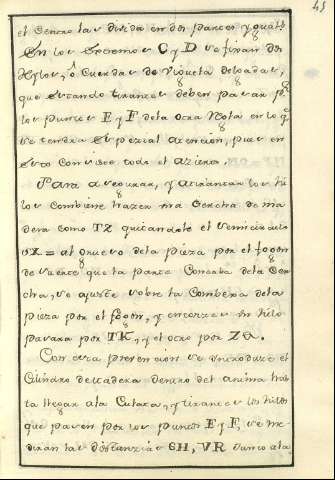 45
el Centro las divida en dos partes yguals.
En los extremos C y D se fixan dos
Hylos, ó Cuerdas de Vigueta delgadas,
que estando tirantes deben pasar pr.
los puntos E y F de la otra Nota en lo q.e
se tendra especial atencion, pues en
esto consiste todo el azierto.
Para asegurar, y atirantar los hi
los combiene hazer una Cercha de ma
dera como TZ quitandole el semicirculo
SX = al grueso de la pieza por el fogon
de suerte que la parte Concaba de la Cer
cha, se ajuste sobre la Combexa de la
pieza por el fogon, y entonzes un hilo
pasara por TK, y el otro por Za.
Con esta prevencion se introduze el
Cilindro de madera dentro del anima has
ta llegar a la Culata, y tirantes los hilos
que pasen por los puntos E y F, se me
diran las distanzias GH, VR Junto a la